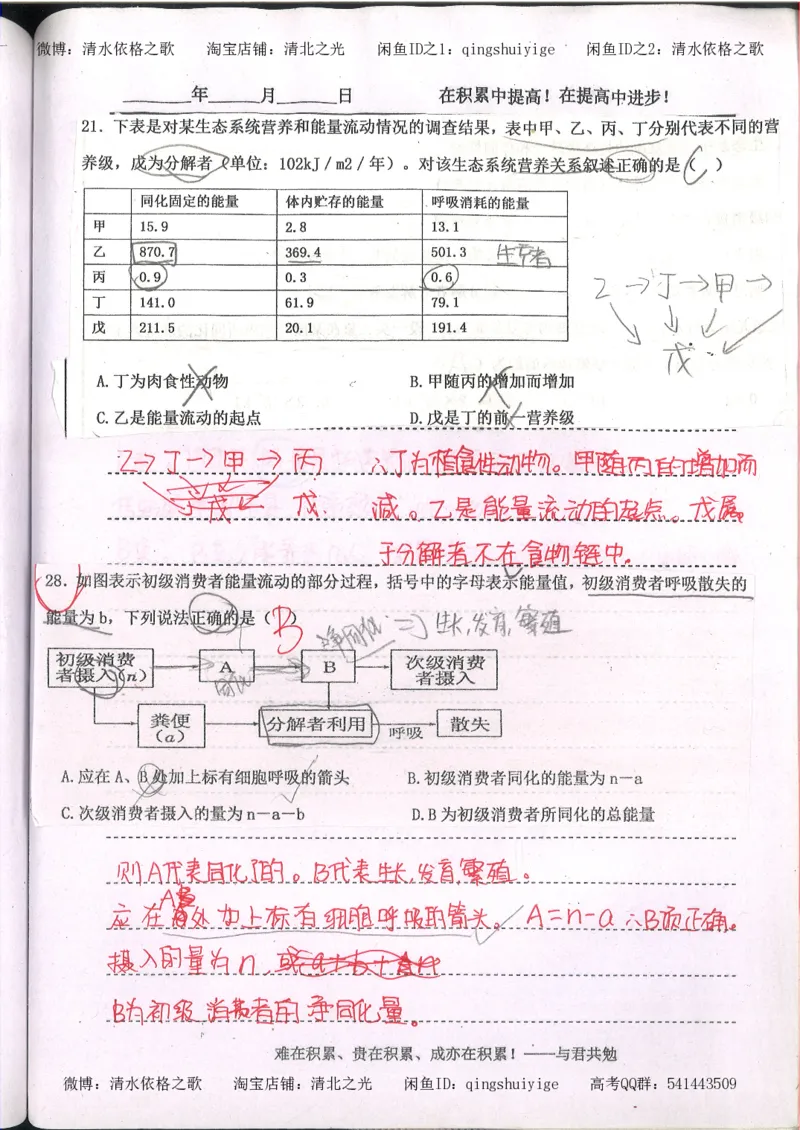 微博：清水依格之歌 淘宝店铺：清北之光 闲鱼ID之1：qingshuiyige 闲鱼ID之2：清水依格之歌
______年______月______日 在积累中提高！在提高中进步！
21．下表是对某生态系统营养和能量流动情况的调查结果，表中甲、乙、丙、丁分别代表不同的营
养级，戊为分解者（单位：102kJ／m2／年）。对该生态系统营养关系叙述正确的是（C）
同化固定的能量 体内贮存的能量 呼吸消耗的能量
甲 15.9 2.8 13.1
乙 870.7 369.4 501.3 生产者
丙 0.9 0.3 0.6
丁 141.0 61.9 79.1
戊 211.5 20.1 191.4
乙→丁→甲→
戊
A.丁为肉食性动物 B.甲随丙的增加而增加
C.乙是能量流动的起点 D.戊是丁的前一营养级
乙→丁→甲→丙 ∴丁为植食性动物。甲随丙的增加而
戊 戊. 减。乙是能量流动的起点。戊属
于分解者不在食物链中.
28．如图表示初级消费者能量流动的部分过程，括号中的字母表示能量值，初级消费者呼吸散失的
能量为b，下列说法正确的是（B）
净同化 ⇒ 生长,发育,繁殖
初级消费者摄入(n) A B 次级消费者摄入
同化
粪便(a) 分解者利用 呼吸 散失
A.应在A、B处加上标有细胞呼吸的箭头 B.初级消费者同化的能量为n－a
C.次级消费者摄入的量为n－a－b D.B为初级消费者所同化的总能量
则A代表同化了的。B代表生长,发育,繁殖。
应在A处加上标有细胞呼吸的箭头。A=n-a ∴B项正确。
摄入的量为n,或
B为初级消费者的净同化量。
难在积累、贵在积累、成亦在积累！——与君共勉
微博：清水依格之歌 淘宝店铺：清北之光 闲鱼ID：qingshuiyige 高考QQ群：541443509